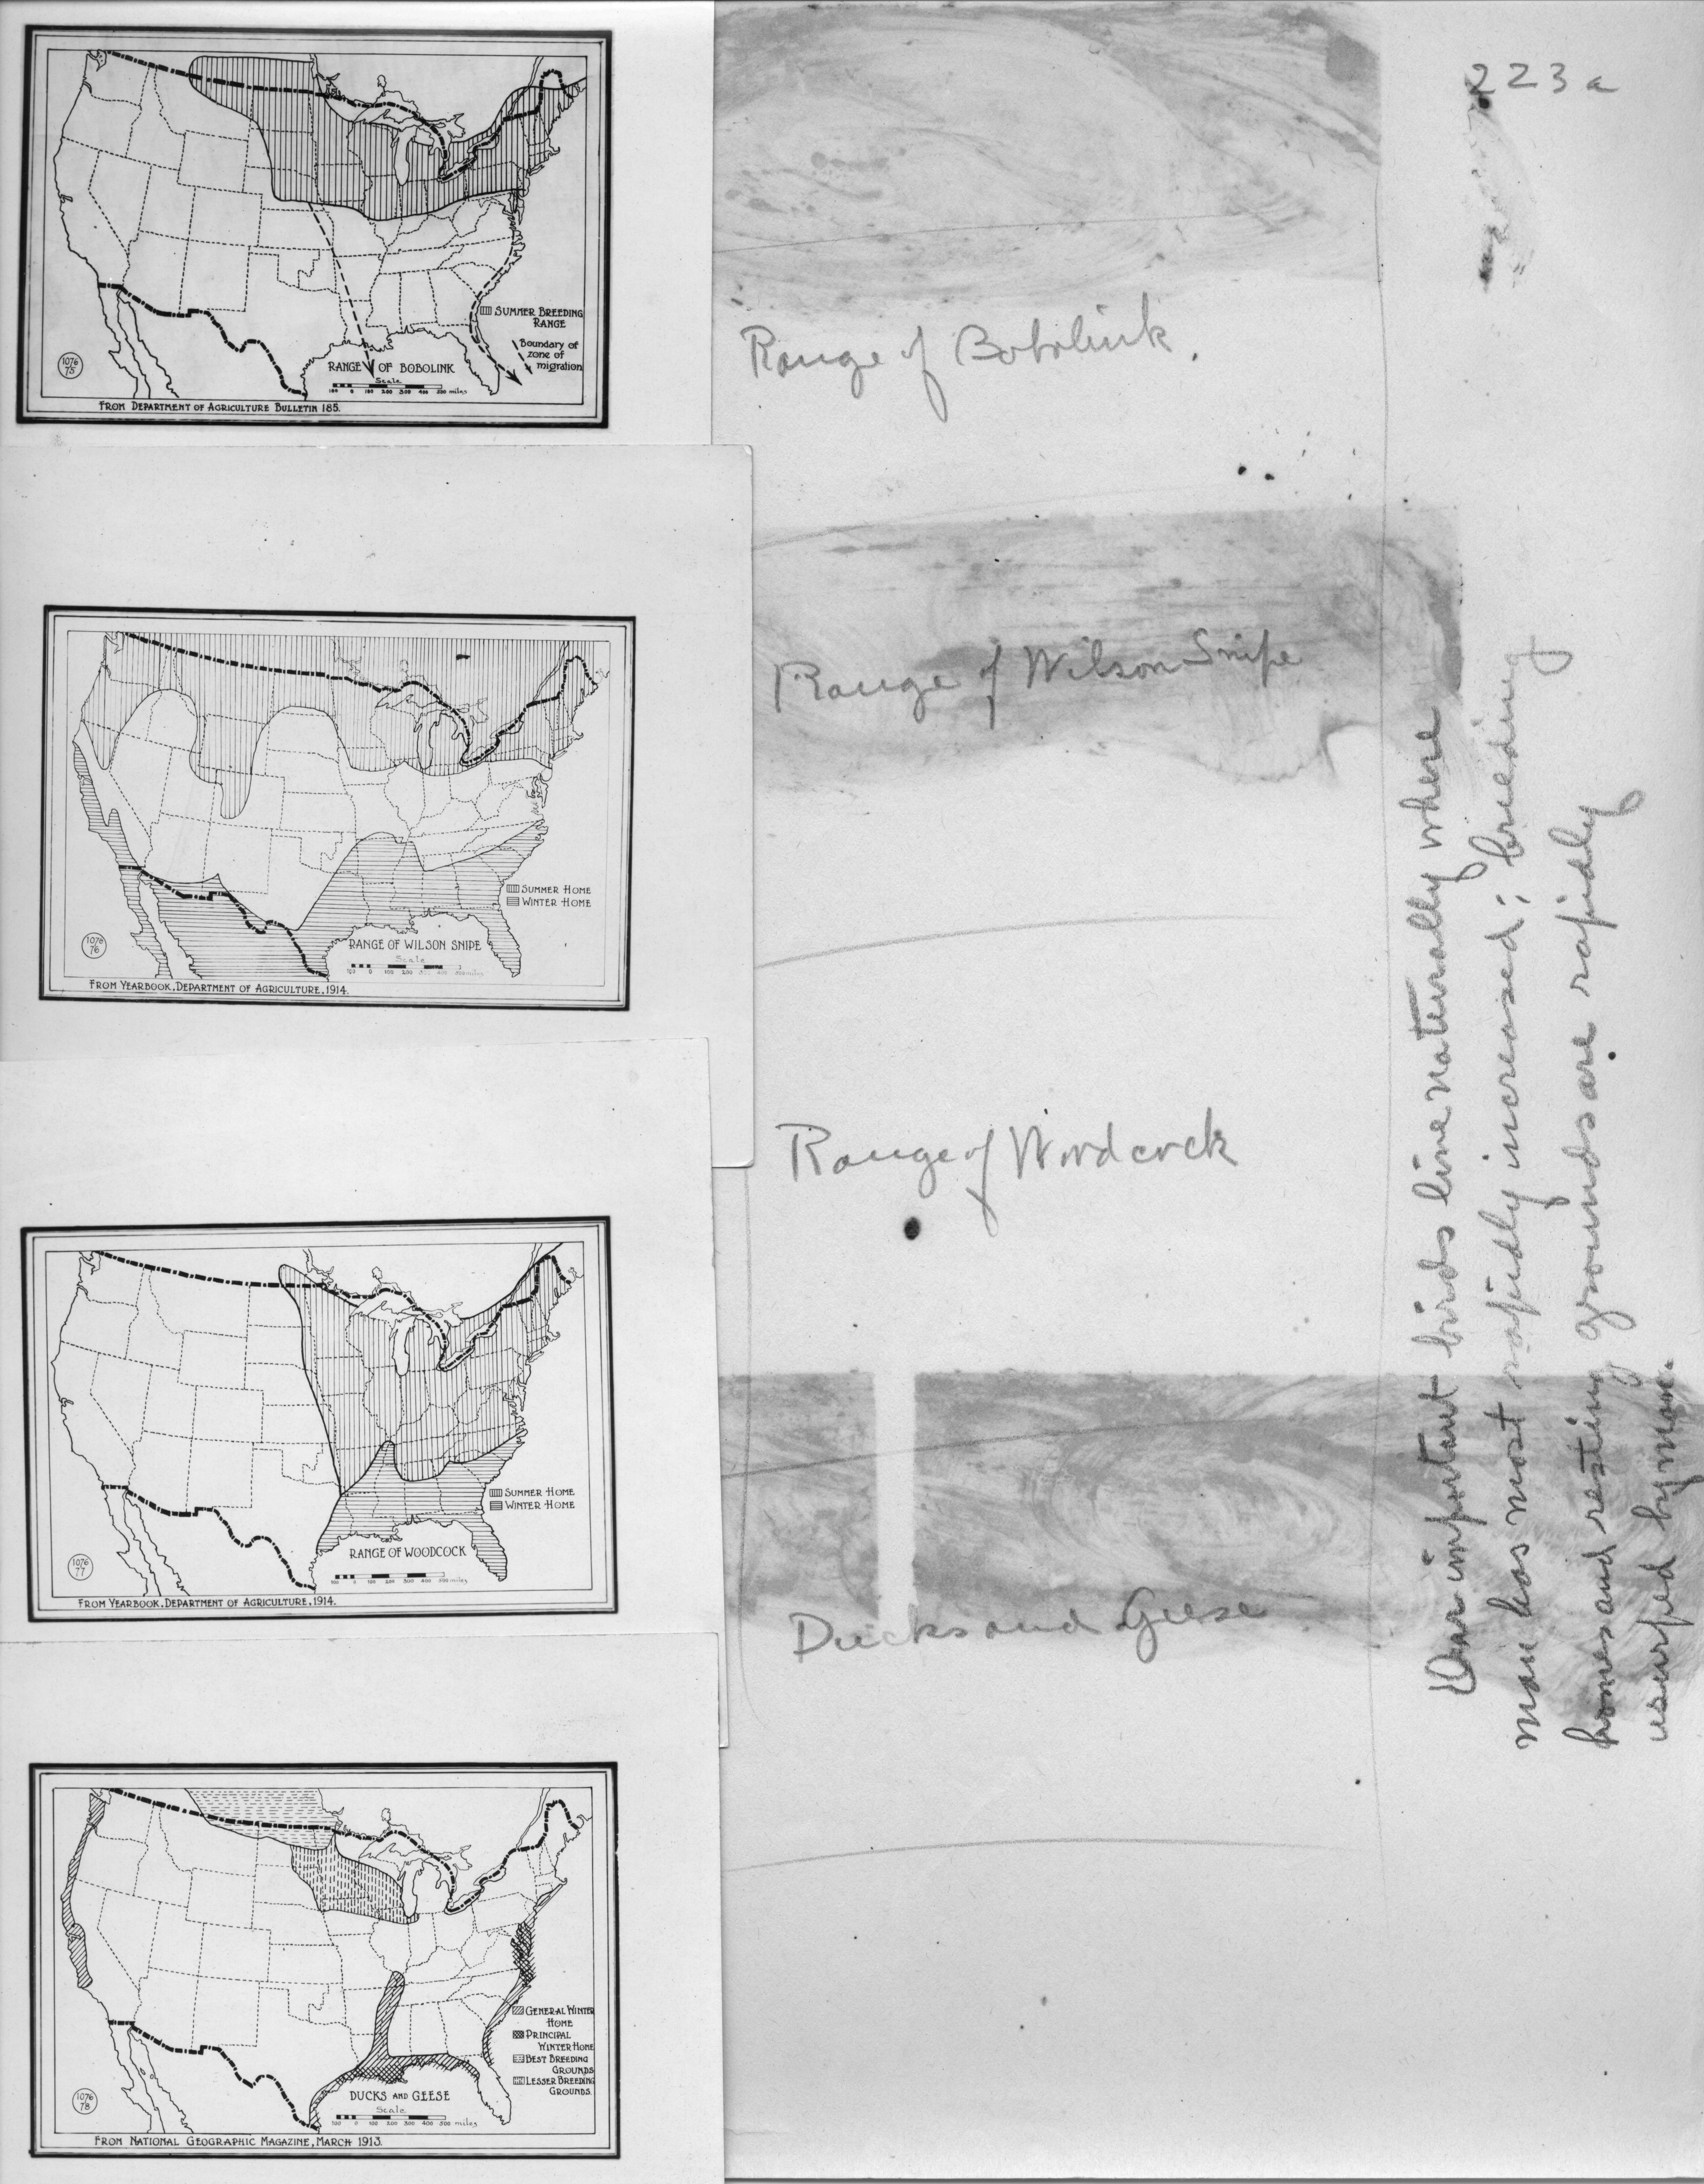 223a
SUMMER BREEDING
RANGE
Boundary of
zone of
migration
RANGE OF BOBOLINK
Scale
100 0 100 200 300 400 500 miles
1076
75
FROM DEPARTMENT OF AGRICULTURE BULLETIN 185.
Range of Bobolink.
SUMMER HOME
WINTER HOME
RANGE OF WILSON SNIPE
Scale
100 0 100 200 300 400 500 miles
1076
76
FROM YEARBOOK, DEPARTMENT OF AGRICULTURE, 1914.
Range of Wilson Snipe
SUMMER HOME
WINTER HOME
RANGE OF WOODCOCK
100 0 100 200 300 400 500 miles
1076
77
FROM YEARBOOK, DEPARTMENT OF AGRICULTURE, 1914.
Range of Woodcock
GENERAL WINTER
HOME
PRINCIPAL
WINTER HOME
BEST BREEDING
GROUNDS
LESSER BREEDING
GROUNDS.
DUCKS AND GEESE
Scale
100 0 100 200 300 400 500 miles
1076
78
FROM NATIONAL GEOGRAPHIC MAGAZINE, MARCH 1913.
Ducks and Geese
Our important birds live naturally where
man has most rapidly increased; breeding
homes and resting grounds are rapidly
usurped by man.